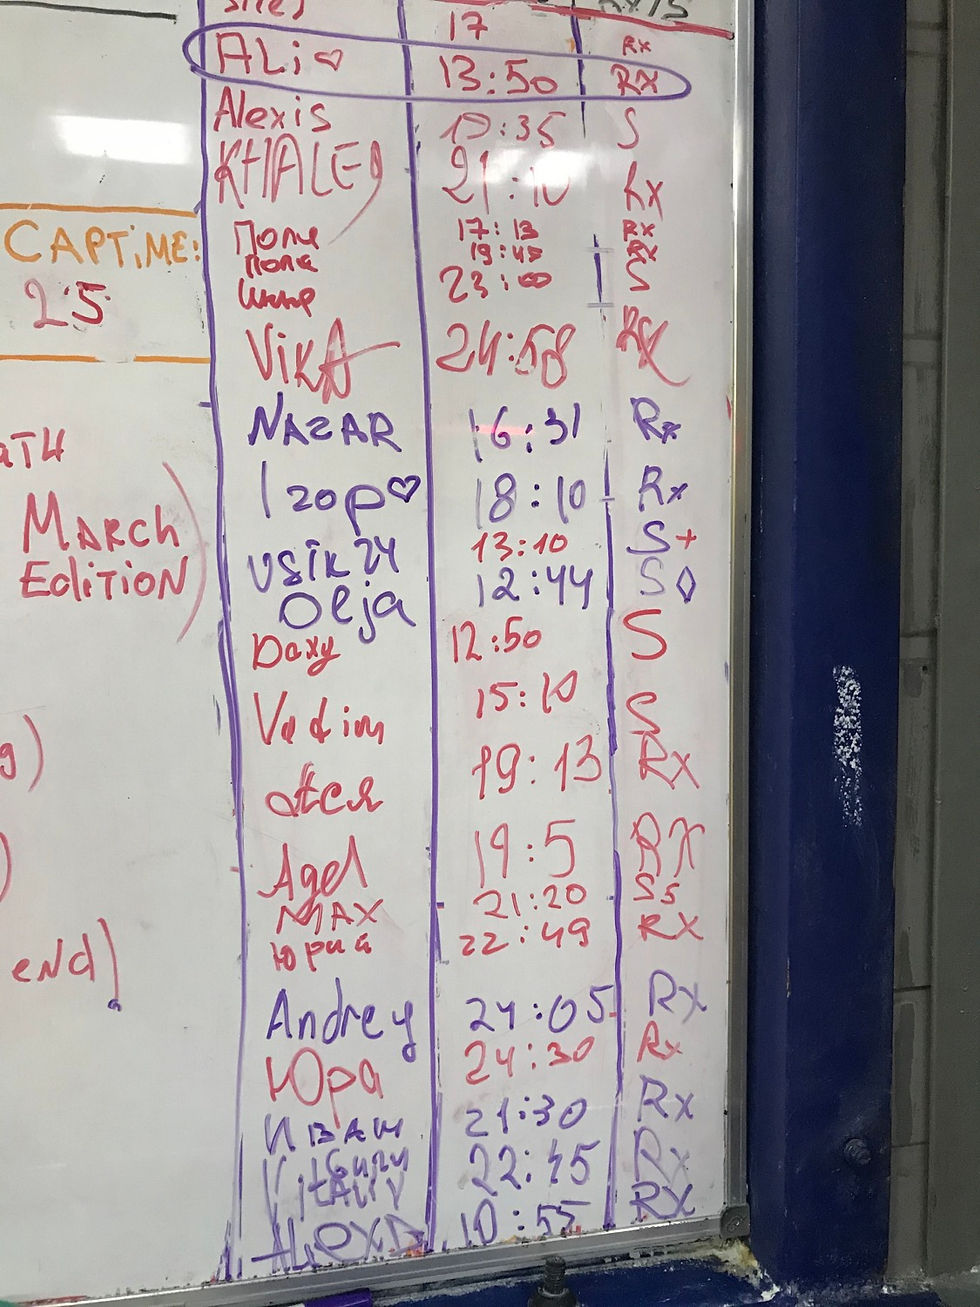 17
ALi ♡ 13:50 Rx
Rx
Alexis 17:35 S
KHALEG 21:10 Rx
CAPTIME:
25
Поли 17:13 Rx
попа 19:45 Rx
23:00 S
VikA 24:58 RX
NAZAR 16:31 Rx
MARCH
EdiTiON)
Igop ♡ 18:10 Rx
USiK 24 13:10 S+
Oleja 12:44 S◊
Daxy 12:50 S
Vadim 15:10 S
Ася 19:13 Rx
Agel 19:5 RX
MAX 21:20 Ss
Юрий 22:49 RX
end)
Andrey 24:05 Rx
Юра 24:30 Rx
Иван 21:30 Rx
VitALiY 22:45 Rx
ALEXD 10:55 RX